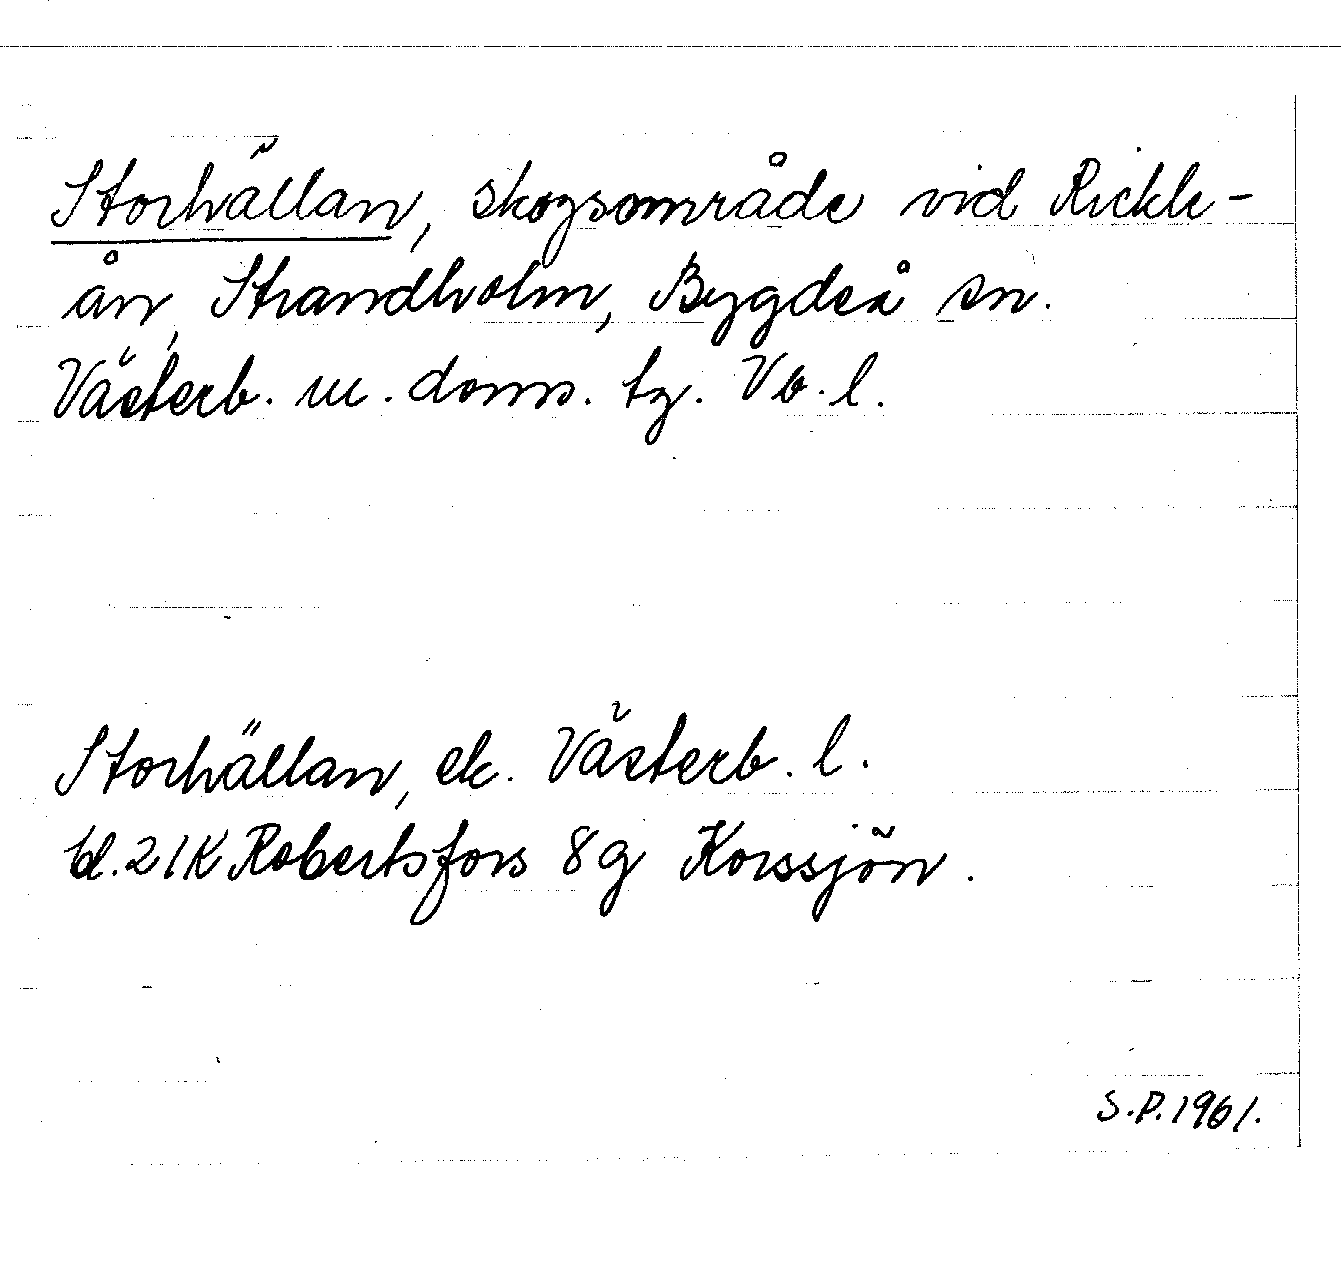 Storhällan, skogsområde vid Rickle-
ån, Strandholm, Bygdeå sn.
Västerb. m. doms. tg. Vb. l.
Storhällan, ek. Västerb. l.
bl. 21K Robertsfors 8g Korssjön.
S.P. 1961.